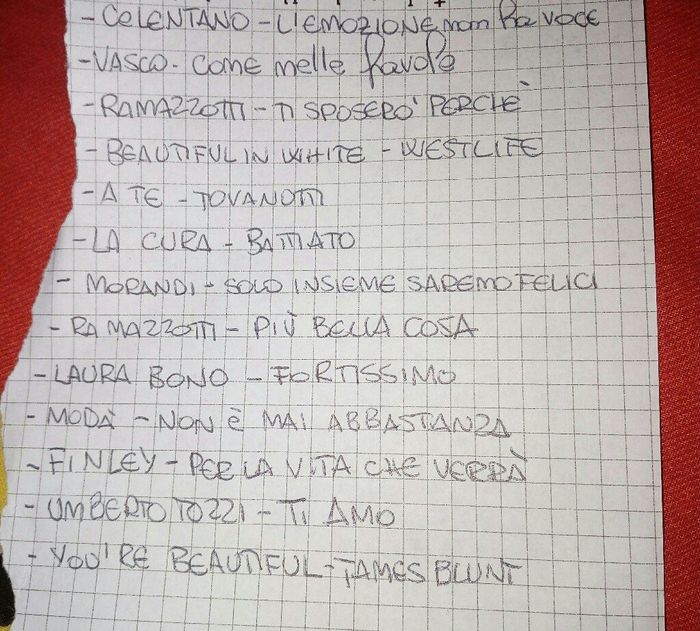 - CELENTANO - L'EMOZIONE non ha voce
- VASCO - Come nelle favole
- RAMAZZOTTI - TI SPOSERÒ PERCHÈ
- BEAUTIFUL IN WHITE - WESTLIFE
- A TE - JOVANOTTI
- LA CURA - BATTIATO
- MORANDI - SOLO INSIEME SAREMO FELICI
- RAMAZZOTTI - PIÙ BELLA COSA
- LAURA BONO - FORTISSIMO
- MODÀ - NON È MAI ABBASTANZA
- FINLEY - PER LA VITA CHE VERRÀ
- UMBERTO TOZZI - TI AMO
- YOU'RE BEAUTIFUL - JAMES BLUNT